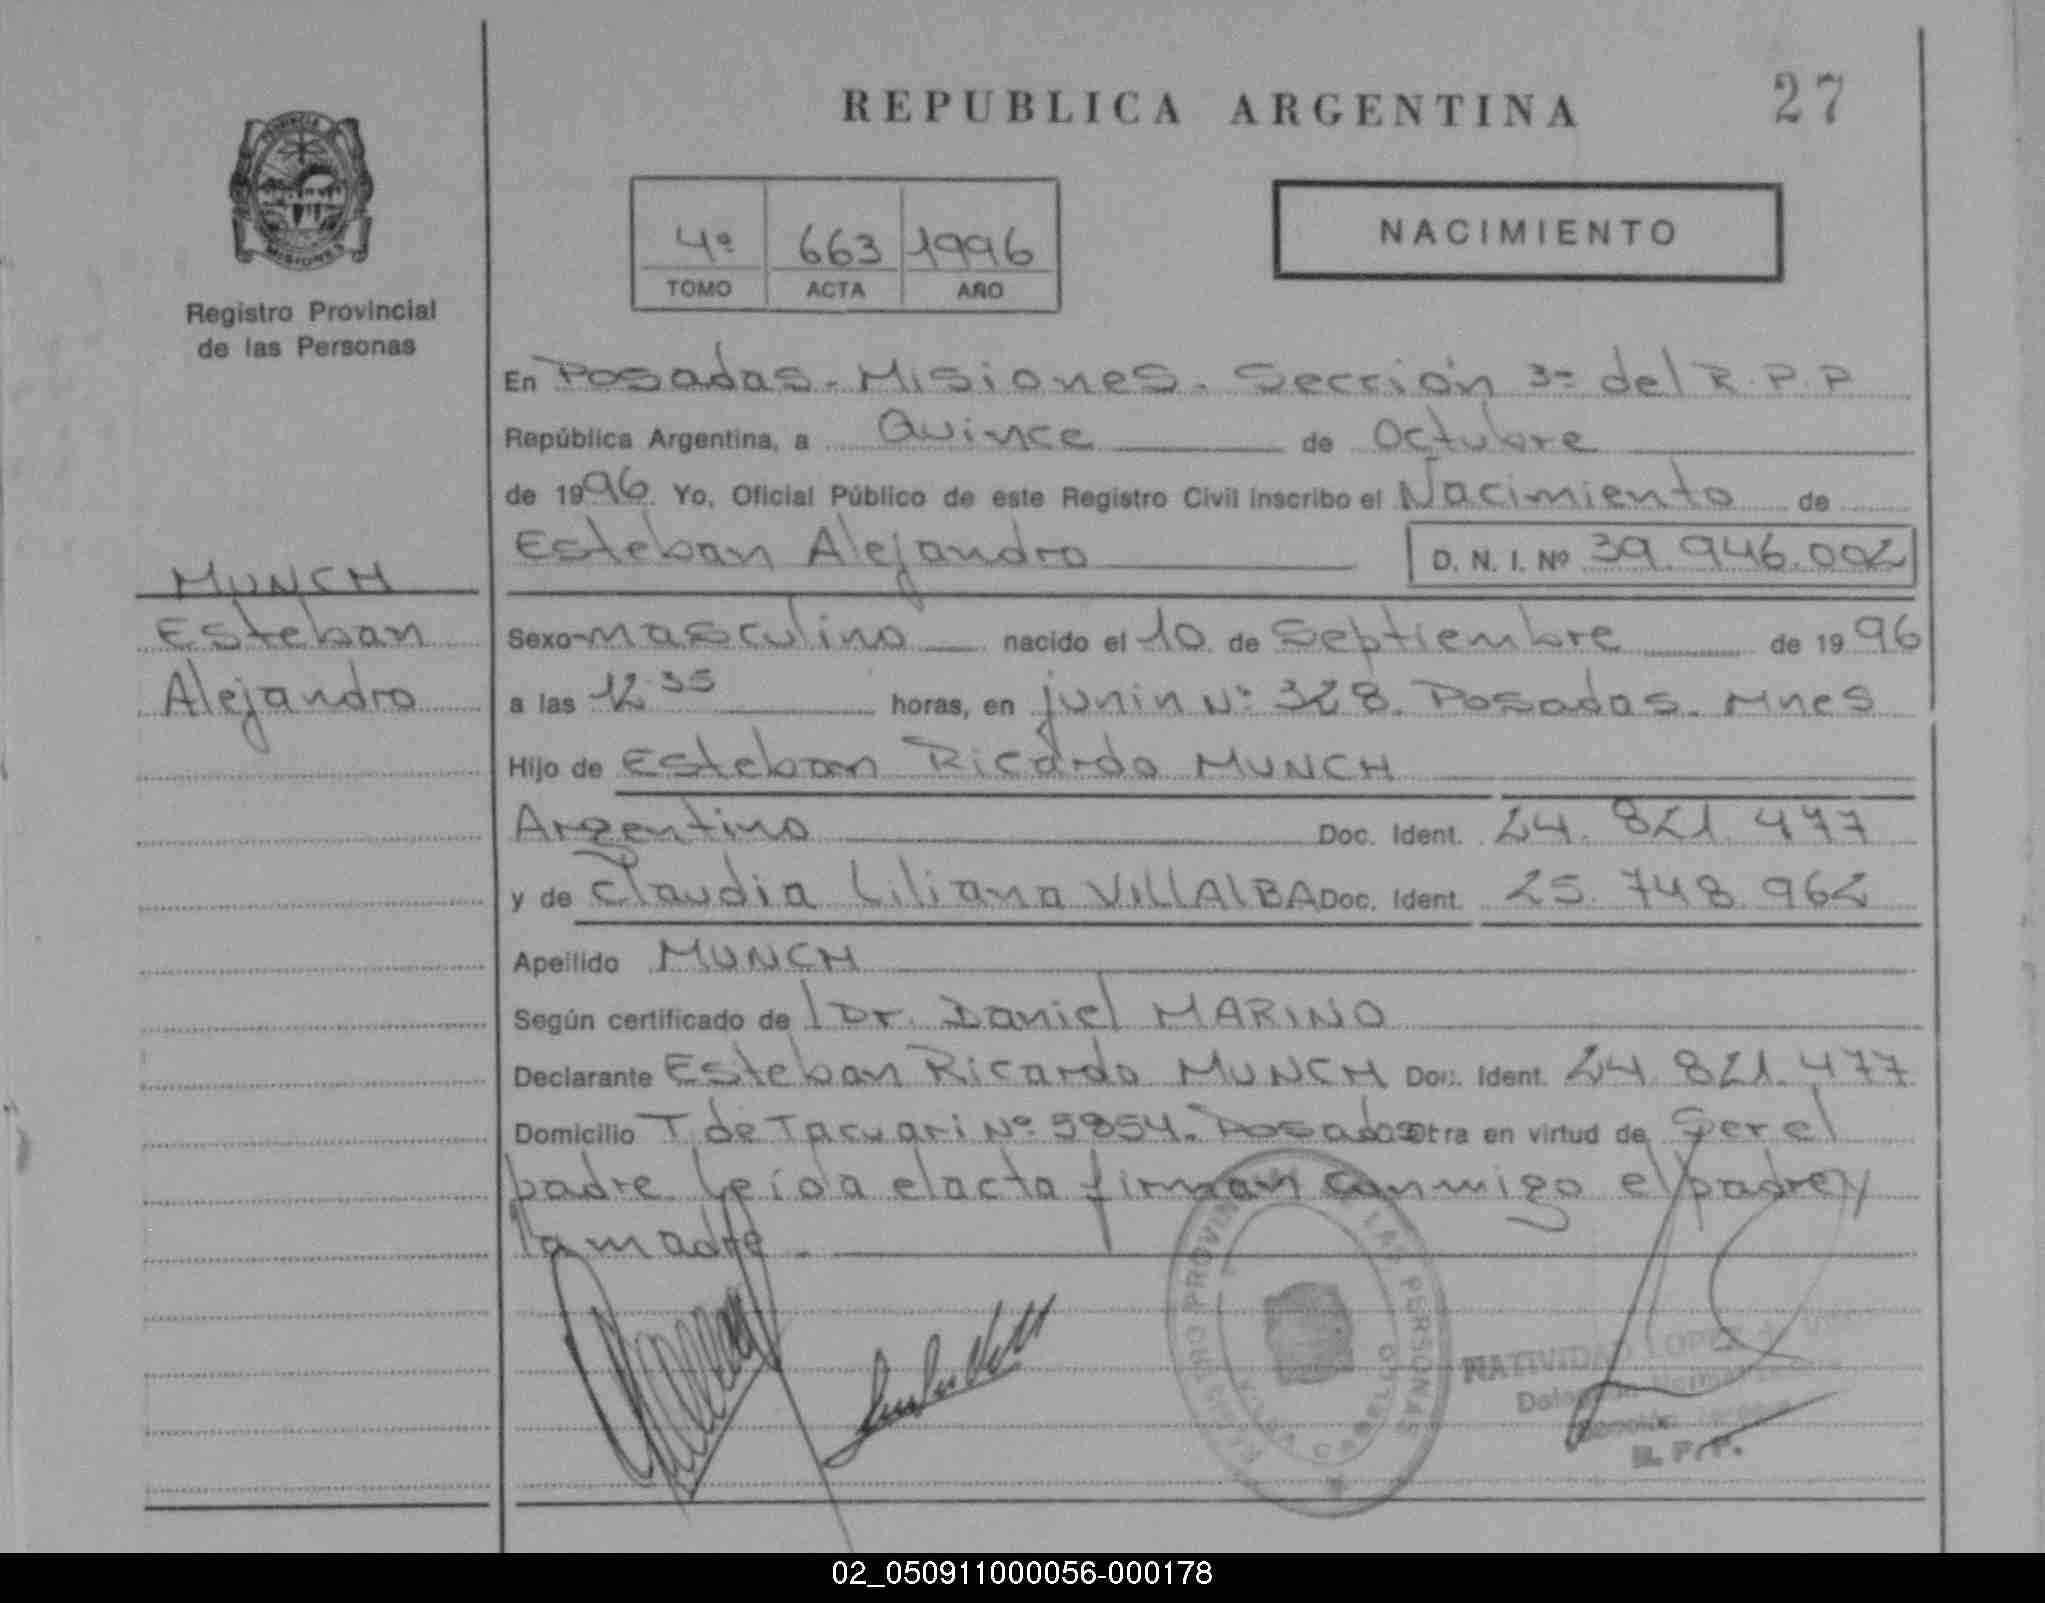 REPUBLICA ARGENTINA
27
PROVINCIA
MISIONES
Registro Provincial
de las Personas
4º 663 1996
TOMO ACTA AÑO
NACIMIENTO
En Posadas - Misiones. Sección 3ª del R.P.P
República Argentina, a Quince de Octubre
de 1996. Yo, Oficial Público de este Registro Civil inscribo el Nacimiento de
Esteban Alejandro D. N. I. Nº 39.946.002
MUNCH
Esteban
Alejandro
Sexo masculino nacido el 10 de Septiembre de 1996
a las 12 35 horas, en junin Nº 328. Posadas. Mnes
Hijo de Esteban Ricardo MUNCH
Argentino Doc. Ident. 24.821.477
y de Claudia Liliana VillAlBA Doc. Ident. 25.748.962
Apellido MUNCH
Según certificado de l Dr. Daniel MARINO
Declarante Esteban Ricardo MUNCH Doc. Ident. 24.821.477
Domicilio T. de Tacuari Nº 5854. Posadas otra en virtud de Ser el
padre Leída elacta firman conmigo el padre y
la madre.
REGISTRO PROVINCIAL DE LAS PERSONAS
NATIVIDAD LOPEZ de
R. P. P.
02_050911000056-000178